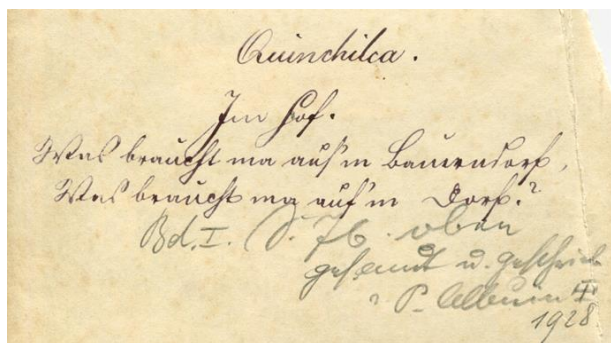 Quinchilca.
Im Hof.
Was braucht ma auf'm Bauerndorf,
Was braucht ma auf'm Dorf?
Bd. I. S. 76. oben
gesandt u.
P. Album II
1928